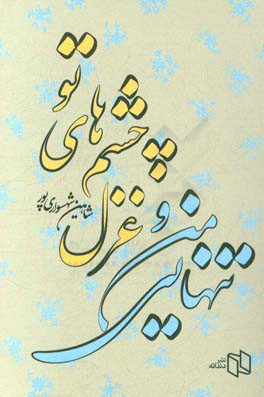 تنهایی
من و
غزل
چشم های
تو
شاهین شهسواری پور
نشر